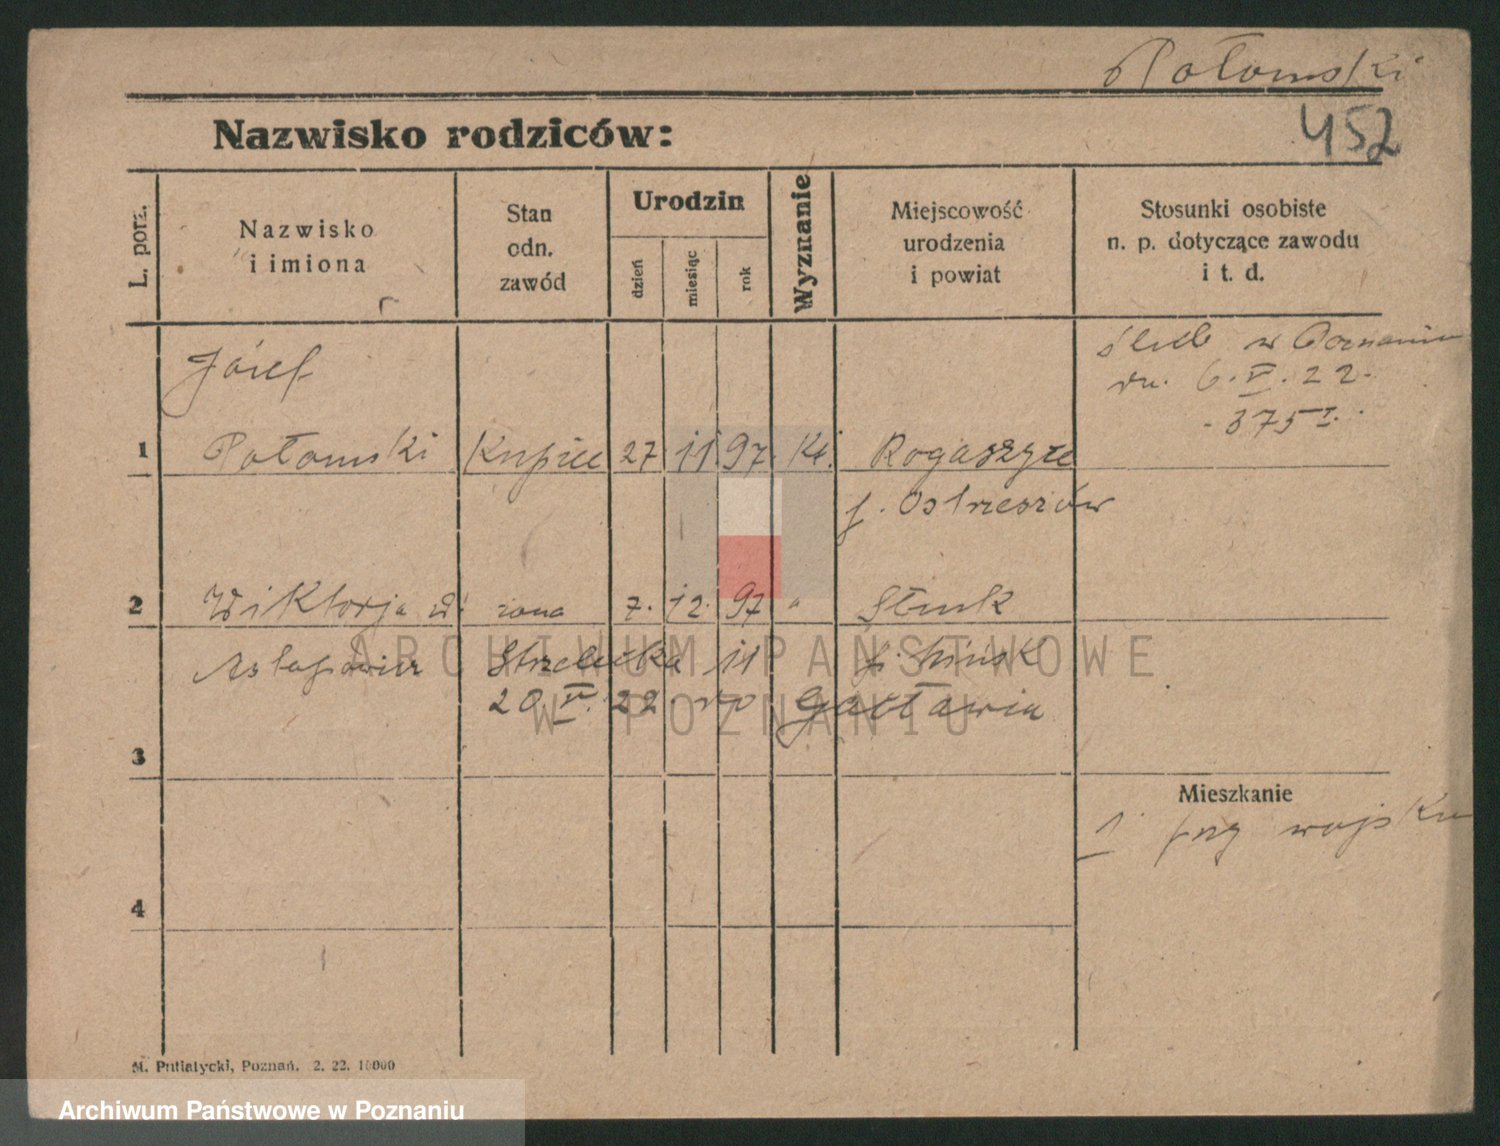 Połomski
452
Nazwisko rodziców:
L. porz.
Nazwisko
i imiona
Stan
odn.
zawód
Urodzin
dzień
miesiąc
rok
Wyznanie
Miejscowość
urodzenia
i powiat
Stosunki osobiste
n. p. dotyczące zawodu
i t. d.
ślub w Poznaniu
dn. 6.V.22.
Józef
- 375 I.
1 Połomski Kupiec 27 11 97. kt. Rogaszyce
p. Ostrzeszów
2 Wiktorja żona 7. 12. 97 " Słuck
Strzelecka 11 p. Mińsk
20.V.22. do
3
Mieszkanie
1 przy wojsku
4
M. Putiatycki, Poznań. 2. 22. 10000
ARCHIWUM PAŃSTWOWE
W POZNANIU
Archiwum Państwowe w Poznaniu